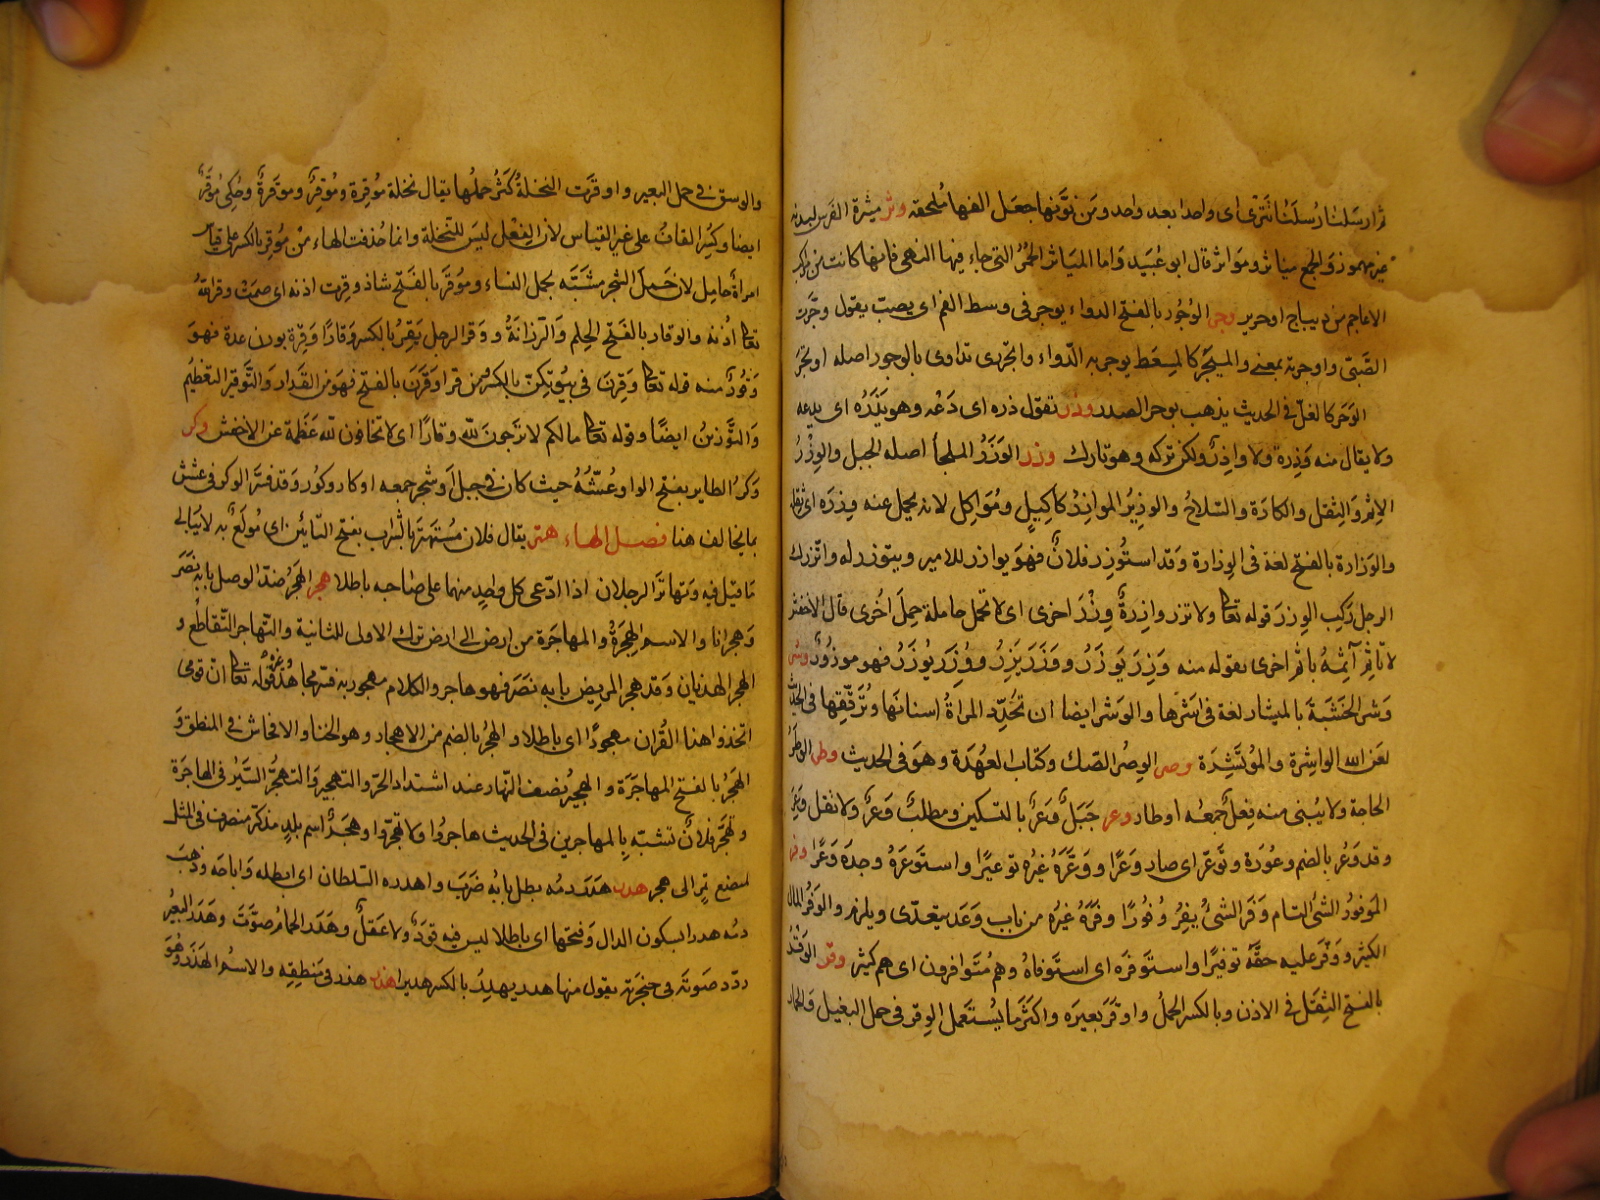 ثم ارسلنا رسلنا تترى اى واحدا بعد واحد ومن نونها جعل الفها ملحقه وثر ميثرة الفرس لبدته
غير مهموز والجمع مياثر ومواثر قال ابو عبيد واما المياثر الحمر التى جاء فيها النهى فانها كانت من مراكب
الاعاجم من ديباج او حرير وجر الوجور بالفتح الدواء يوجر فى وسط الفم اى يصب يقول وجرت
الصبى واوجرته بمعنى والميجر كالمسعط يوجر به الدواء واتجرى تداوى بالوجور اصله اوتجر
الوحر كالغل فى الحديث يذهب بوحر الصدر وذر تقول ذره اى دعه وهو يذره اى يدعه
ولا يقال منه وذرة ولا واذر ولكن تركه وهو تارك وزر الوزر الملجأ اصله الجبل والوزر
الاثم والثقل والكارة والسلاح والوزير الموازر كاكيل ومواكل لانه يحمل عنه وزره اى ثقله
والوزارة بالفتح لغة فى الوزارة وقد استوزر فلان فهو يوازر للامير ويتوزر له واتزرك
الرجل ركب الوزر قوله تعالى ولا تزر وازرة وزر اخرى اى لا تحمل حاملة حمل اخرى قال الاخفش
لا تاثم آثمة باثم اخرى يقوله منه وزر يوزر ووزر يزر ووزر يوزر فهو موزور وشر
وشر الخشبة بالميشار لغة فى اشرها والوشر ايضا ان تحدد المراة اسنانها وترققها فى الحديث
لعن الله الواشرة والموتشرة وصر الوصر الصك وكتاب العهدة وهو فى الحديث وطر الوطر
الحاجة ولا يبنى منه فعل جمعه اوطار وعر جبل وعر بالتسكين ومطلب وعر ولا تقل وعر
وقد وعر بالضم وعورة وتوعر اى صار وعرا ووعره غيره توعيرا واستوعره وجده وعرا وفر
الموفور الشئ التام وفر الشئ يفر وفورا وفره غيره من باب وعد يتعدى ويلزم والوفر المال
الكثير ووفر عليه حقه توفيرا واستوفره اى استوفاه وهم متوافرون اى هم كثير وقر الوقر
بالفتح الثقل فى الاذن وبالكسر الحمل واوقر بعيره واكثر ما يستعمل الوقر فى حمل البغل والحمار
والوسق فى حمل البعير واوقرت النخلة كثر حملها يقال نخلة موقرة وموقر وموقرة وحكى موقر
ايضا وكسر القاف على غير القياس لان الفعل ليس للنخلة وانما حذفت الهاء من موقر بالكسر على قياس
امراة حامل لان حمل الشجر مشبه بحمل النساء وموقر بالفتح شاذ وقرت اذنه اى صمت وقر الله
تعالى اذنه والوقار بالفتح الحلم والرزانة ووقر الرجل يقر بالكسر وقارا وقرة بوزن عدة فهو
وقور منه قوله تعالى وقرن فى بيوتكن بالكسر من قر او قرن بالفتح فهو من القرار والتوقير التعظيم
والتوزين ايضا وقوله تعالى مالكم لا ترجون لله وقارا اى لا تخافون لله عظمة عن الاخفش وكر
وكر الطاير بفتح الواو عشه حيث كان فى جبل او شجر جمعه اوكار ووكور وقد فسر الوكر فى عشش
بما يخالف هنا فصل الهاء هتر يقال فلان مستهتر بالشراب بفتح التائين اى مولع به لا يبالى
ما قيل فيه وتهاتر الرجلان اذا ادعى كل واحد منهما على صاحبه باطلا هجر الهجر ضد الوصل بابه نصر
وهجرانا والاسم الهجرة والمهاجرة من ارض الى ارض ترك الاولى للثانية والتهاجر التقاطع و
الهجر الهذيان وقد هجر المريض بابه نصر فهو هاجر والكلام مهجور به فسر مجاهد قوله تعالى ان قومى
اتخذوا هذا القران مهجورا اى باطلا والهجر بالضم من الاهجار وهو الخنا والافحاش فى المنطق و
الهجر بالفتح المهاجرة والهجير نصف النهار عند اشتداد الحر والتهجير والتهجر السير فى الهاجرة
وتهجر فلان تشبه بالمهاجرين فى الحديث هاجروا ولا تهجروا وهجر اسم بلد مذكر منصرف فى المثل
كمبضع تمر الى هجر هدر هدر دمه بطل بابه ضرب واهدره السلطان اى ابطله واباحه وذهب
دمه هدرا بسكون الدال وفتحها اى باطلا ليس فيه قود ولا عقل وهدر الحمام صوت وهدر البعير
ردد صوته فى حنجرته يقول منها هدر يهدر بالكسر هديرا هذر هذر فى منطقه والاسم الهذر وهو